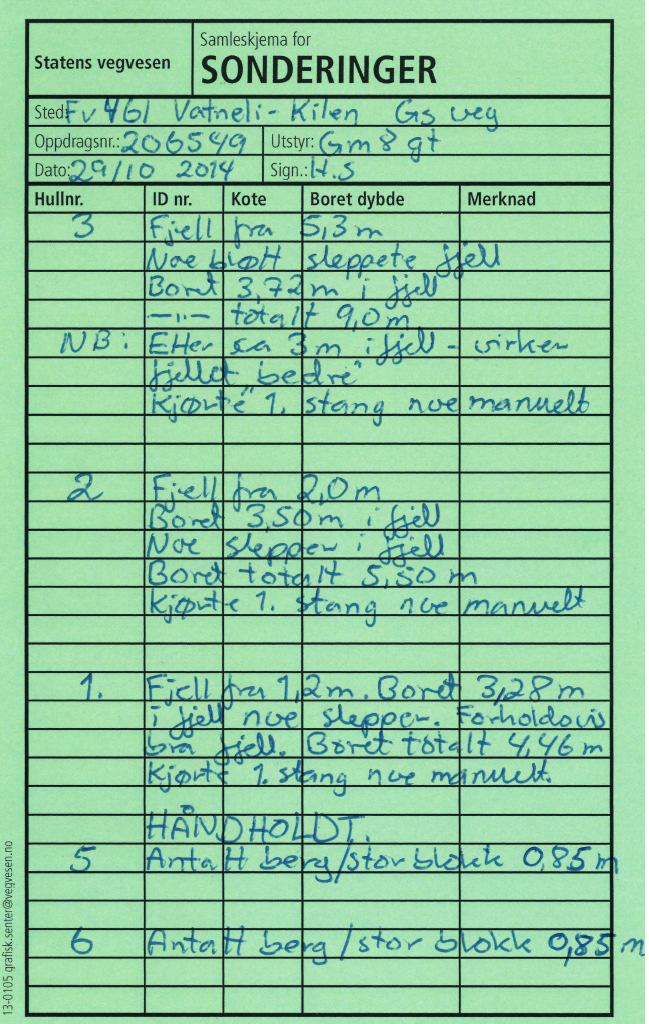 Statens vegvesen
Samleskjema for
SONDERINGER
Sted: Fv 461 Vatneli - Kilen Gs veg
Oppdragsnr.: 206549 Utstyr: Gm 8 gt
Dato: 29/10 2014 Sign.: H.S
Hullnr. ID nr. Kote Boret dybde Merknad
3 Fjell fra 5,3 m
Noe bløtt sleppete fjell
Boret 3,72 m i fjell
—"— totalt 9,0 m
NB: Etter ca 3 m i fjell - virker
fjellet "bedre"
Kjørte 1. stang noe manuelt
2 Fjell fra 2,0 m
Boret 3,50 m i fjell
Noe slepper i fjell
Boret totalt 5,50 m
Kjørte 1. stang noe manuelt
1. Fjell fra 1,2 m. Boret 3,28 m
i fjell noe slepper. Forholdsvis
bra fjell. Boret totalt 4,46 m
Kjørte 1. stang noe manuelt.
HÅNDHOLDT.
5 Antatt berg/stor blokk 0,85 m
6 Antatt berg/stor blokk 0,85 m
13-0105 grafisk.senter@vegvesen.no